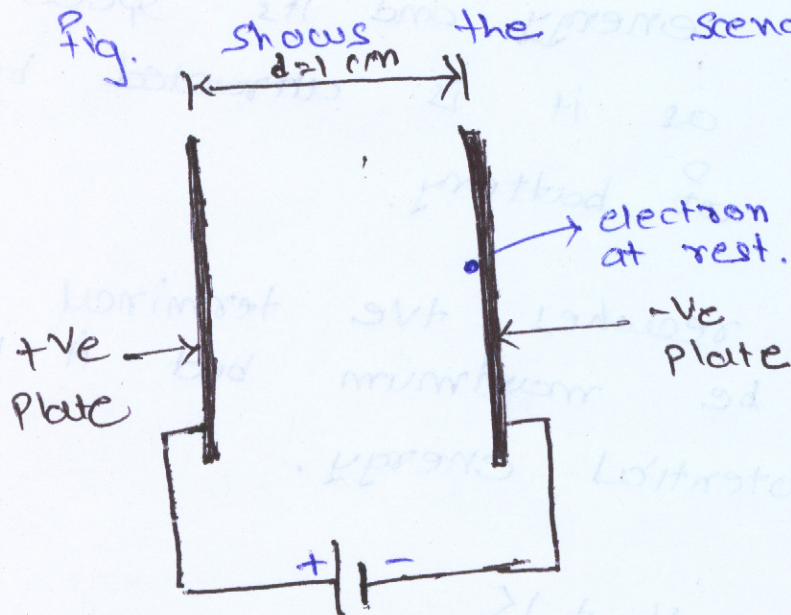 Fig. shows the scena
d=1 cm
electron
at rest.
+ve
plate
-ve
plate
+ -